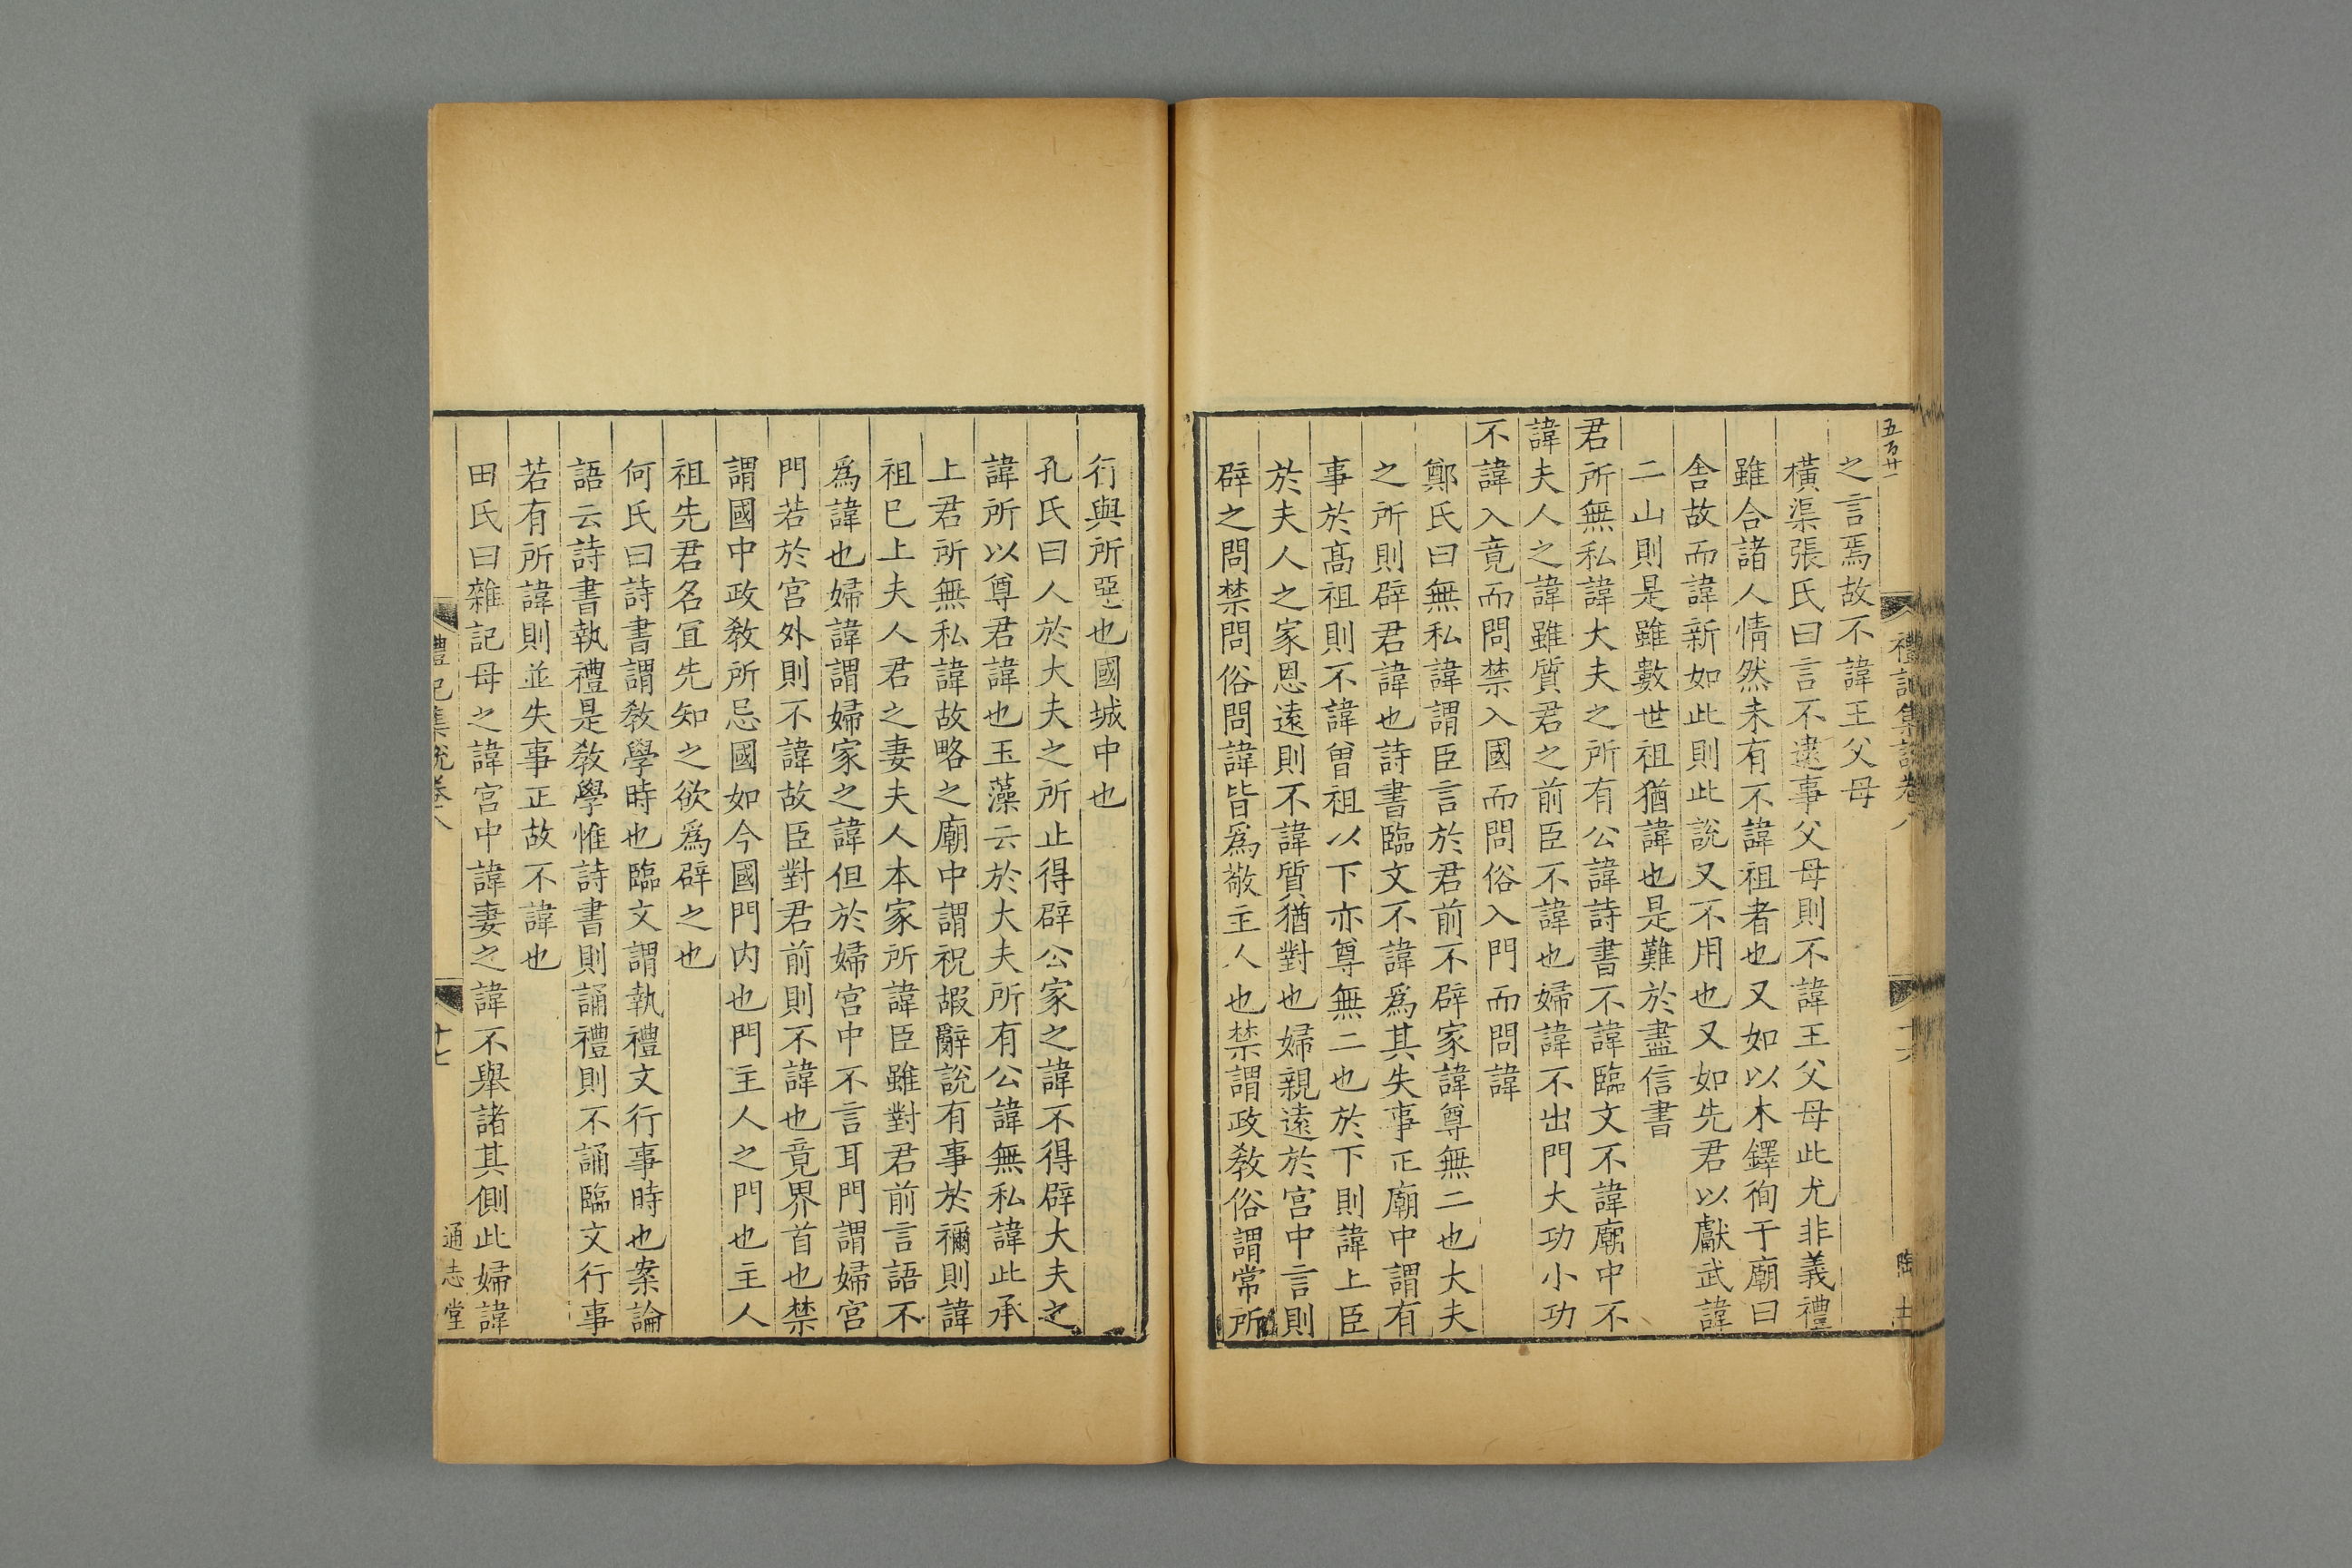 五百廿一
禮記集說卷八
十六
陶士
之言焉故不諱王父母
橫渠張氏曰言不逮事父母則不諱王父母此尤非義禮
雖合諸人情然未有不諱祖者也又如以木鐸徇于廟曰
舍故而諱新如此則此說又不用也又如先君以獻武諱
二山則是雖數世祖猶諱也是難於盡信書
君所無私諱大夫之所有公諱詩書不諱臨文不諱廟中不
諱夫人之諱雖質君之前臣不諱也婦諱不出門大功小功
不諱入竟而問禁入國而問俗入門而問諱
鄭氏曰無私諱謂臣言於君前不辟家諱尊無二也大夫
之所則辟君諱也詩書臨文不諱爲其失事正廟中謂有
事於髙祖則不諱曾祖以下亦尊無二也於下則諱上臣
於夫人之家恩遠則不諱質猶對也婦親遠於宫中言則
辟之問禁問俗問諱皆爲敬主人也禁謂政敎俗謂常所
行與所惡也國城中也
孔氏曰人於大夫之所止得辟公家之諱不得辟大夫之
諱所以尊君諱也玉藻云於大夫所有公諱無私諱此承
上君所無私諱故略之廟中謂祝嘏辭說有事於禰則諱
祖已上夫人君之妻夫人本家所諱臣雖對君前言語不
爲諱也婦諱謂婦家之諱但於婦宫中不言耳門謂婦宫
門若於宫外則不諱故臣對君前則不諱也竟界首也禁
謂國中政敎所忌國如今國門内也門主人之門也主人
祖先君名宜先知之欲爲辟之也
何氏曰詩書謂敎學時也臨文謂執禮文行事時也案論
語云詩書執禮是敎學惟詩書則誦禮則不誦臨文行事
若有所諱則並失事正故不諱也
田氏曰雜記母之諱宫中諱妻之諱不舉諸其側此婦諱
禮記集說卷八
十七
通志堂